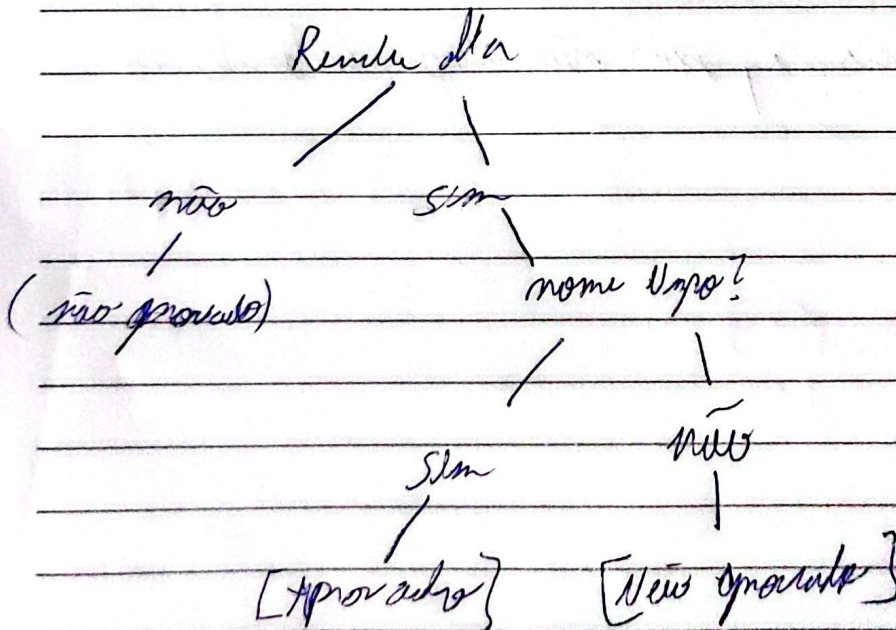 Renda alta
não sim
(não aprovado) nome limpo?
Sim não
[Aprovado] [Não aprovado]